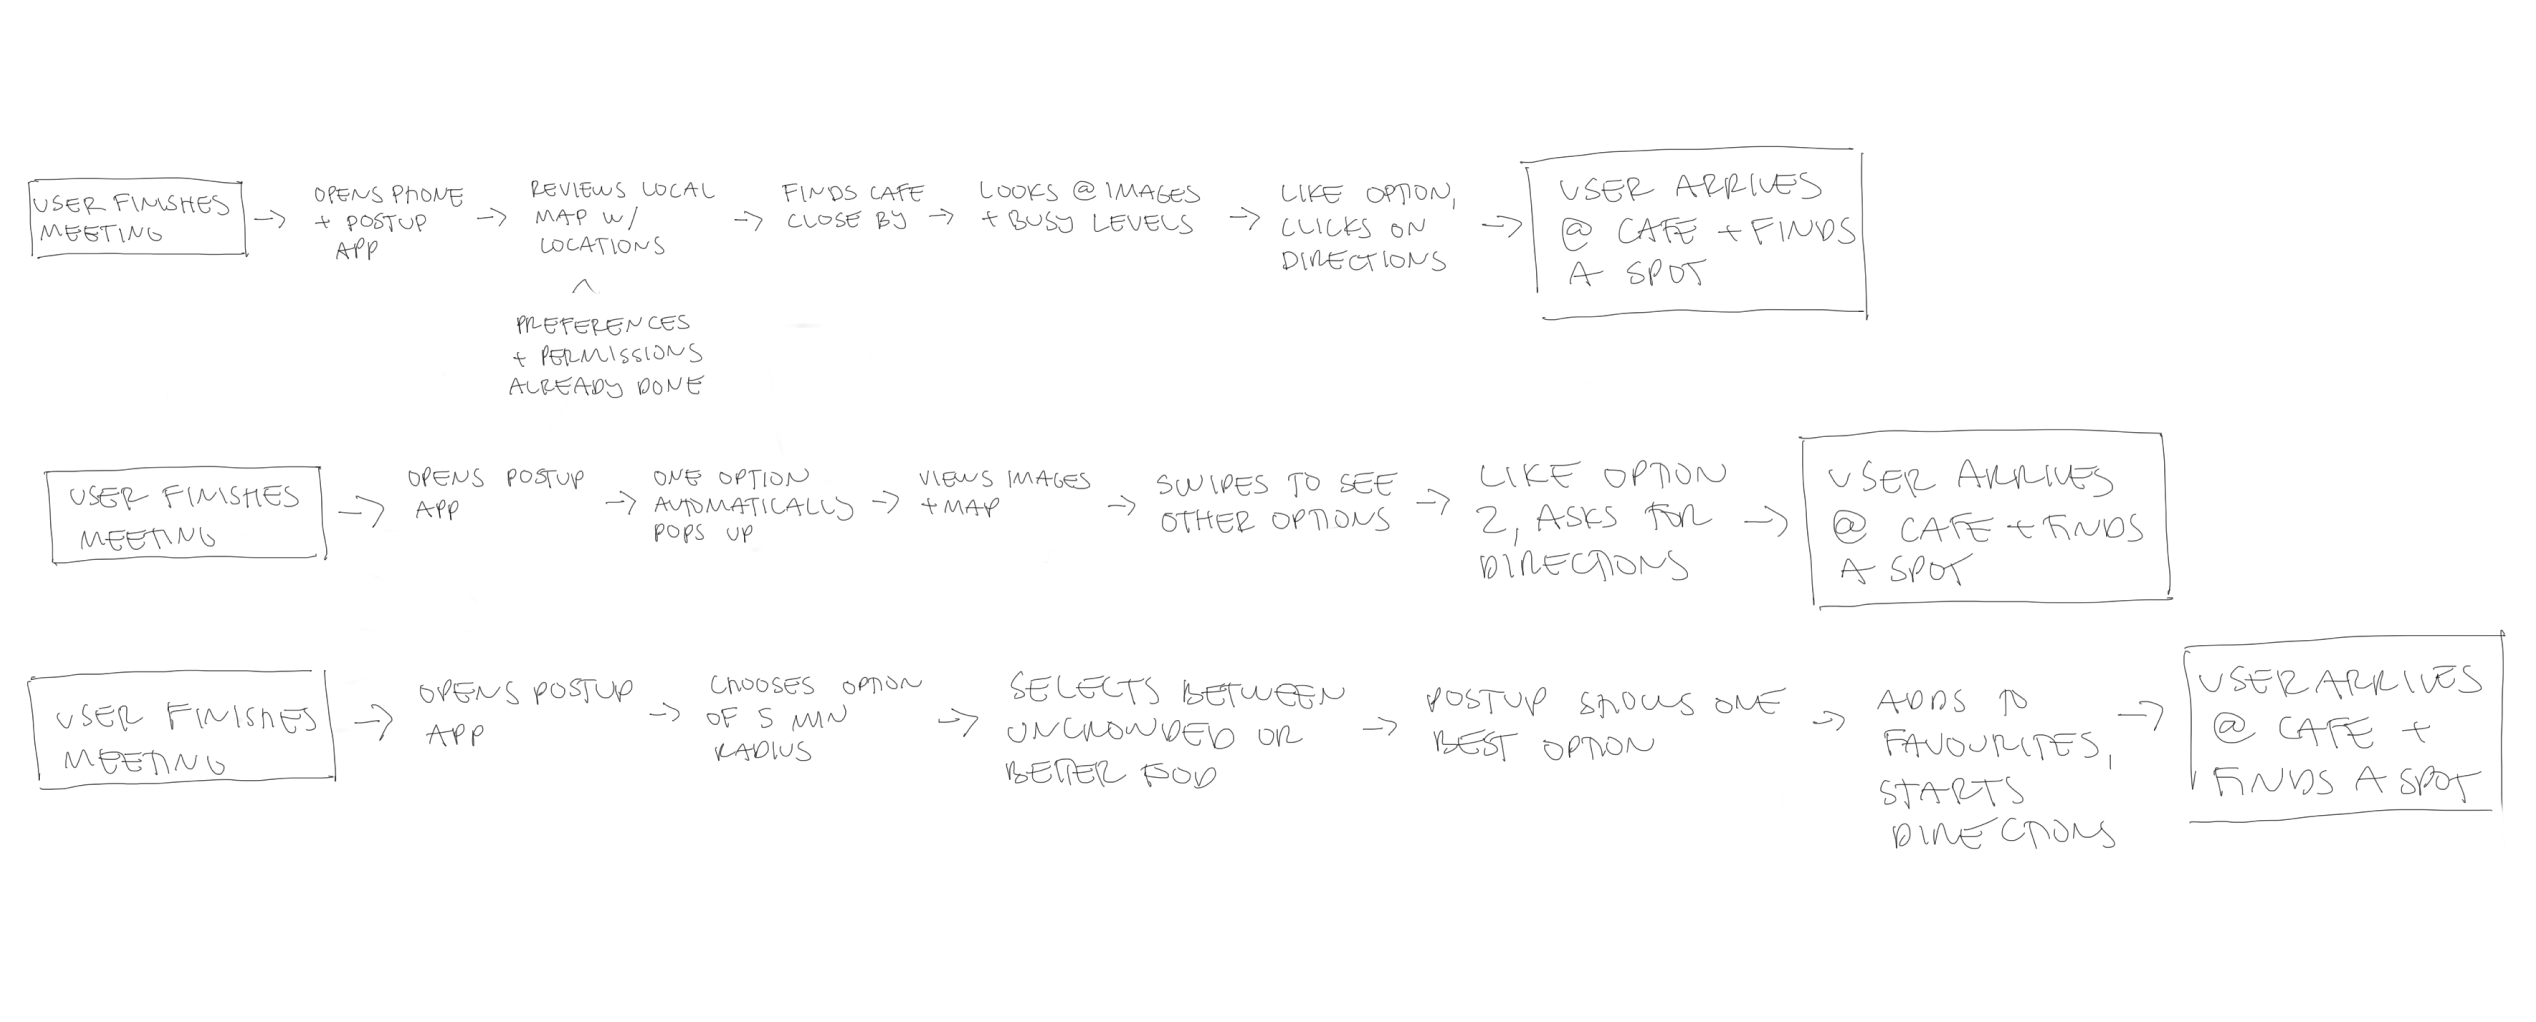 USER FINISHES
MEETING
→
OPENS PHONE
+ POSTUP
APP
→
REVIEWS LOCAL
MAP W/
LOCATIONS
^
PREFERENCES
+ PERMISSIONS
ALREADY DONE
→
FINDS CAFE
CLOSE BY
→
LOOKS @ IMAGES
+ BUSY LEVELS
→
LIKE OPTION,
CLICKS ON
DIRECTIONS
→
USER ARRIVES
@ CAFE + FINDS
A SPOT
USER FINISHES
MEETING
→
OPENS POSTUP
APP
→
ONE OPTION
AUTOMATICALLY
POPS UP
→
VIEWS IMAGES
+ MAP
→
SWIPES TO SEE
OTHER OPTIONS
→
LIKE OPTION
2, ASKS FOR
DIRECTIONS
→
USER ARRIVES
@ CAFE + FINDS
A SPOT
USER FINISHES
MEETING
→
OPENS POSTUP
APP
→
CHOOSES OPTION
OF 5 MIN
RADIUS
→
SELECTS BETWEEN
UNCROWDED OR
BETTER FOOD
→
POSTUP SHOWS ONE
BEST OPTION
→
ADDS TO
FAVOURITES,
STARTS
DIRECTIONS
→
USER ARRIVES
@ CAFE +
FINDS A SPOT